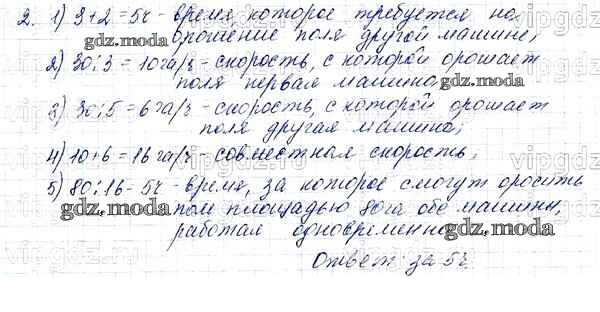 2. 1) 3+2=5ч - время которое требуется на
орошение поля другой машине;
2) 30:3=10га/ч - скорость, с которой орошает
поля первая машина
3) 30:5=6га/ч - скорость, с которой орошает
поля другая машина;
4) 10+6=16га/ч - совместная скорость;
5) 80:16=5ч - время, за которое смогут оросить
поле площадью 80га обе машины,
работая одновременно
Ответ: за 5ч
gdz.moda
gdz.moda
gdz.moda
gdz.moda
vipgdz